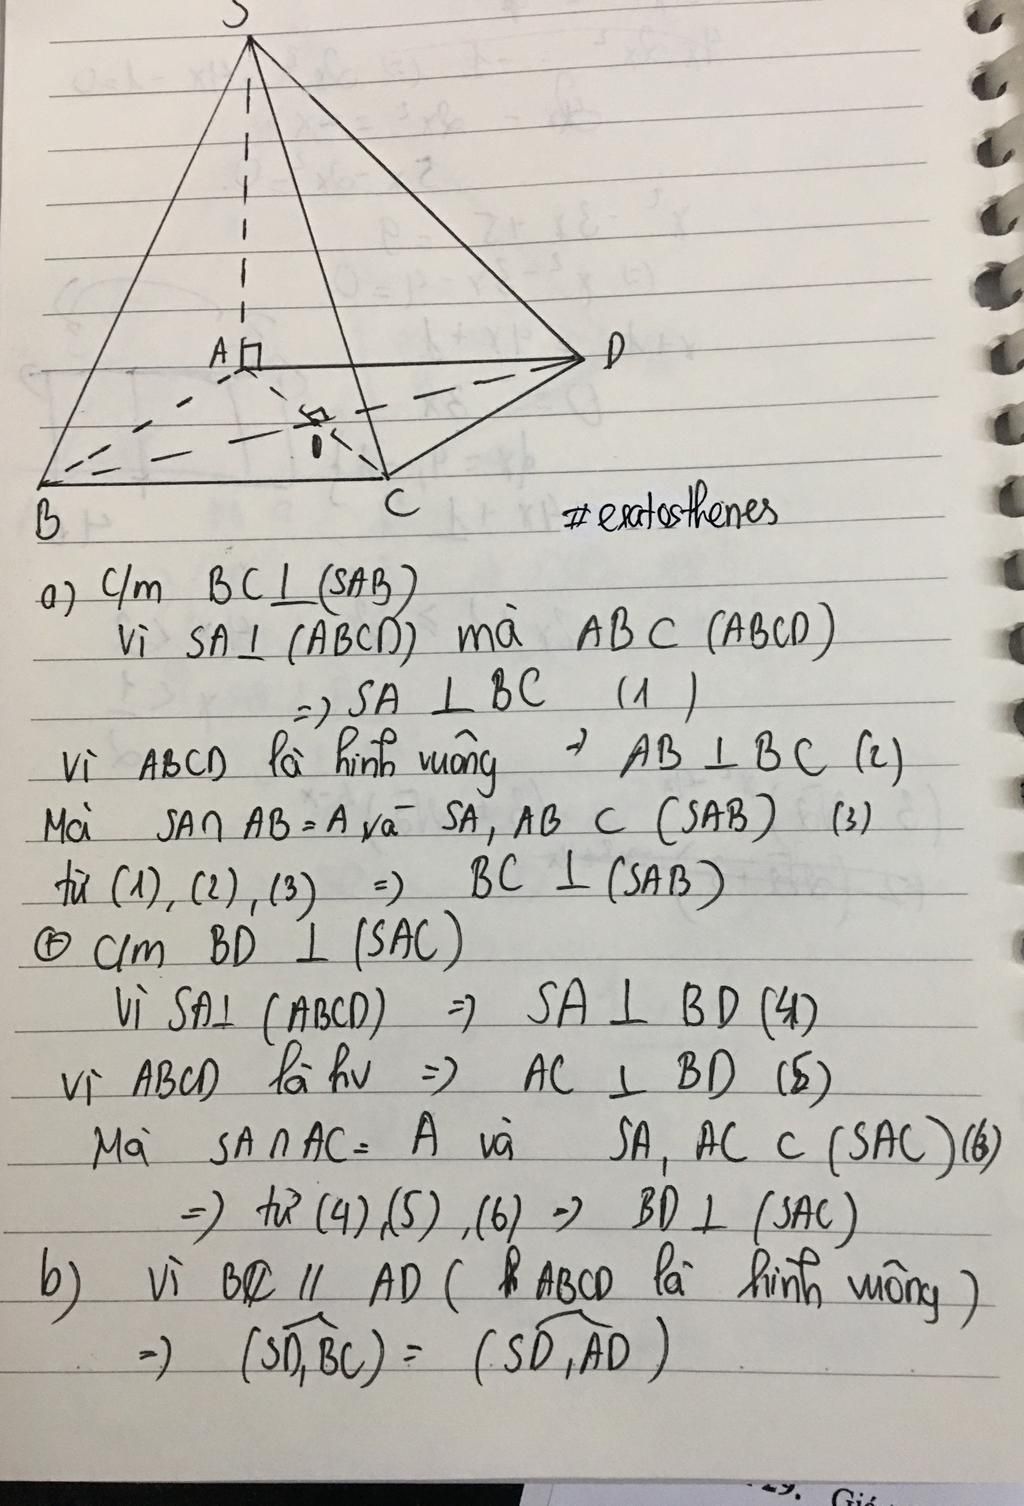 S
A
D
B
C
#eratosthenes
a) C/m BC ⊥ (SAB)
Vì SA ⊥ (ABCD) mà ABC (ABCD)
=> SA ⊥ BC (1)
Vì ABCD là hình vuông → AB ⊥ BC (2)
Mà SA ∩ AB = A và SA, AB ⊂ (SAB) (3)
từ (1), (2), (3) => BC ⊥ (SAB)
⊕ C/m BD ⊥ (SAC)
Vì SA ⊥ (ABCD) => SA ⊥ BD (4)
Vì ABCD là hv => AC ⊥ BD (5)
Mà SA ∩ AC = A và SA, AC ⊂ (SAC) (6)
=> từ (4), (5), (6) => BD ⊥ (SAC)
b) Vì BC // AD ( ABCD là hình vuông )
=> (SD, BC) = (SD, AD)
29. Giá